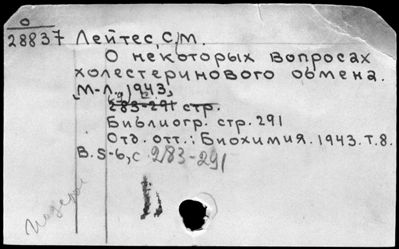 О
28837 Лейтес, С.М.
О некоторых вопросах
холестеринового обмена.
М-Л., 1943,
283-291 стр.
Библиогр. стр. 291
Отд. отт.: Биохимия. 1943. т.8.
В. 5-6, с. 283-291